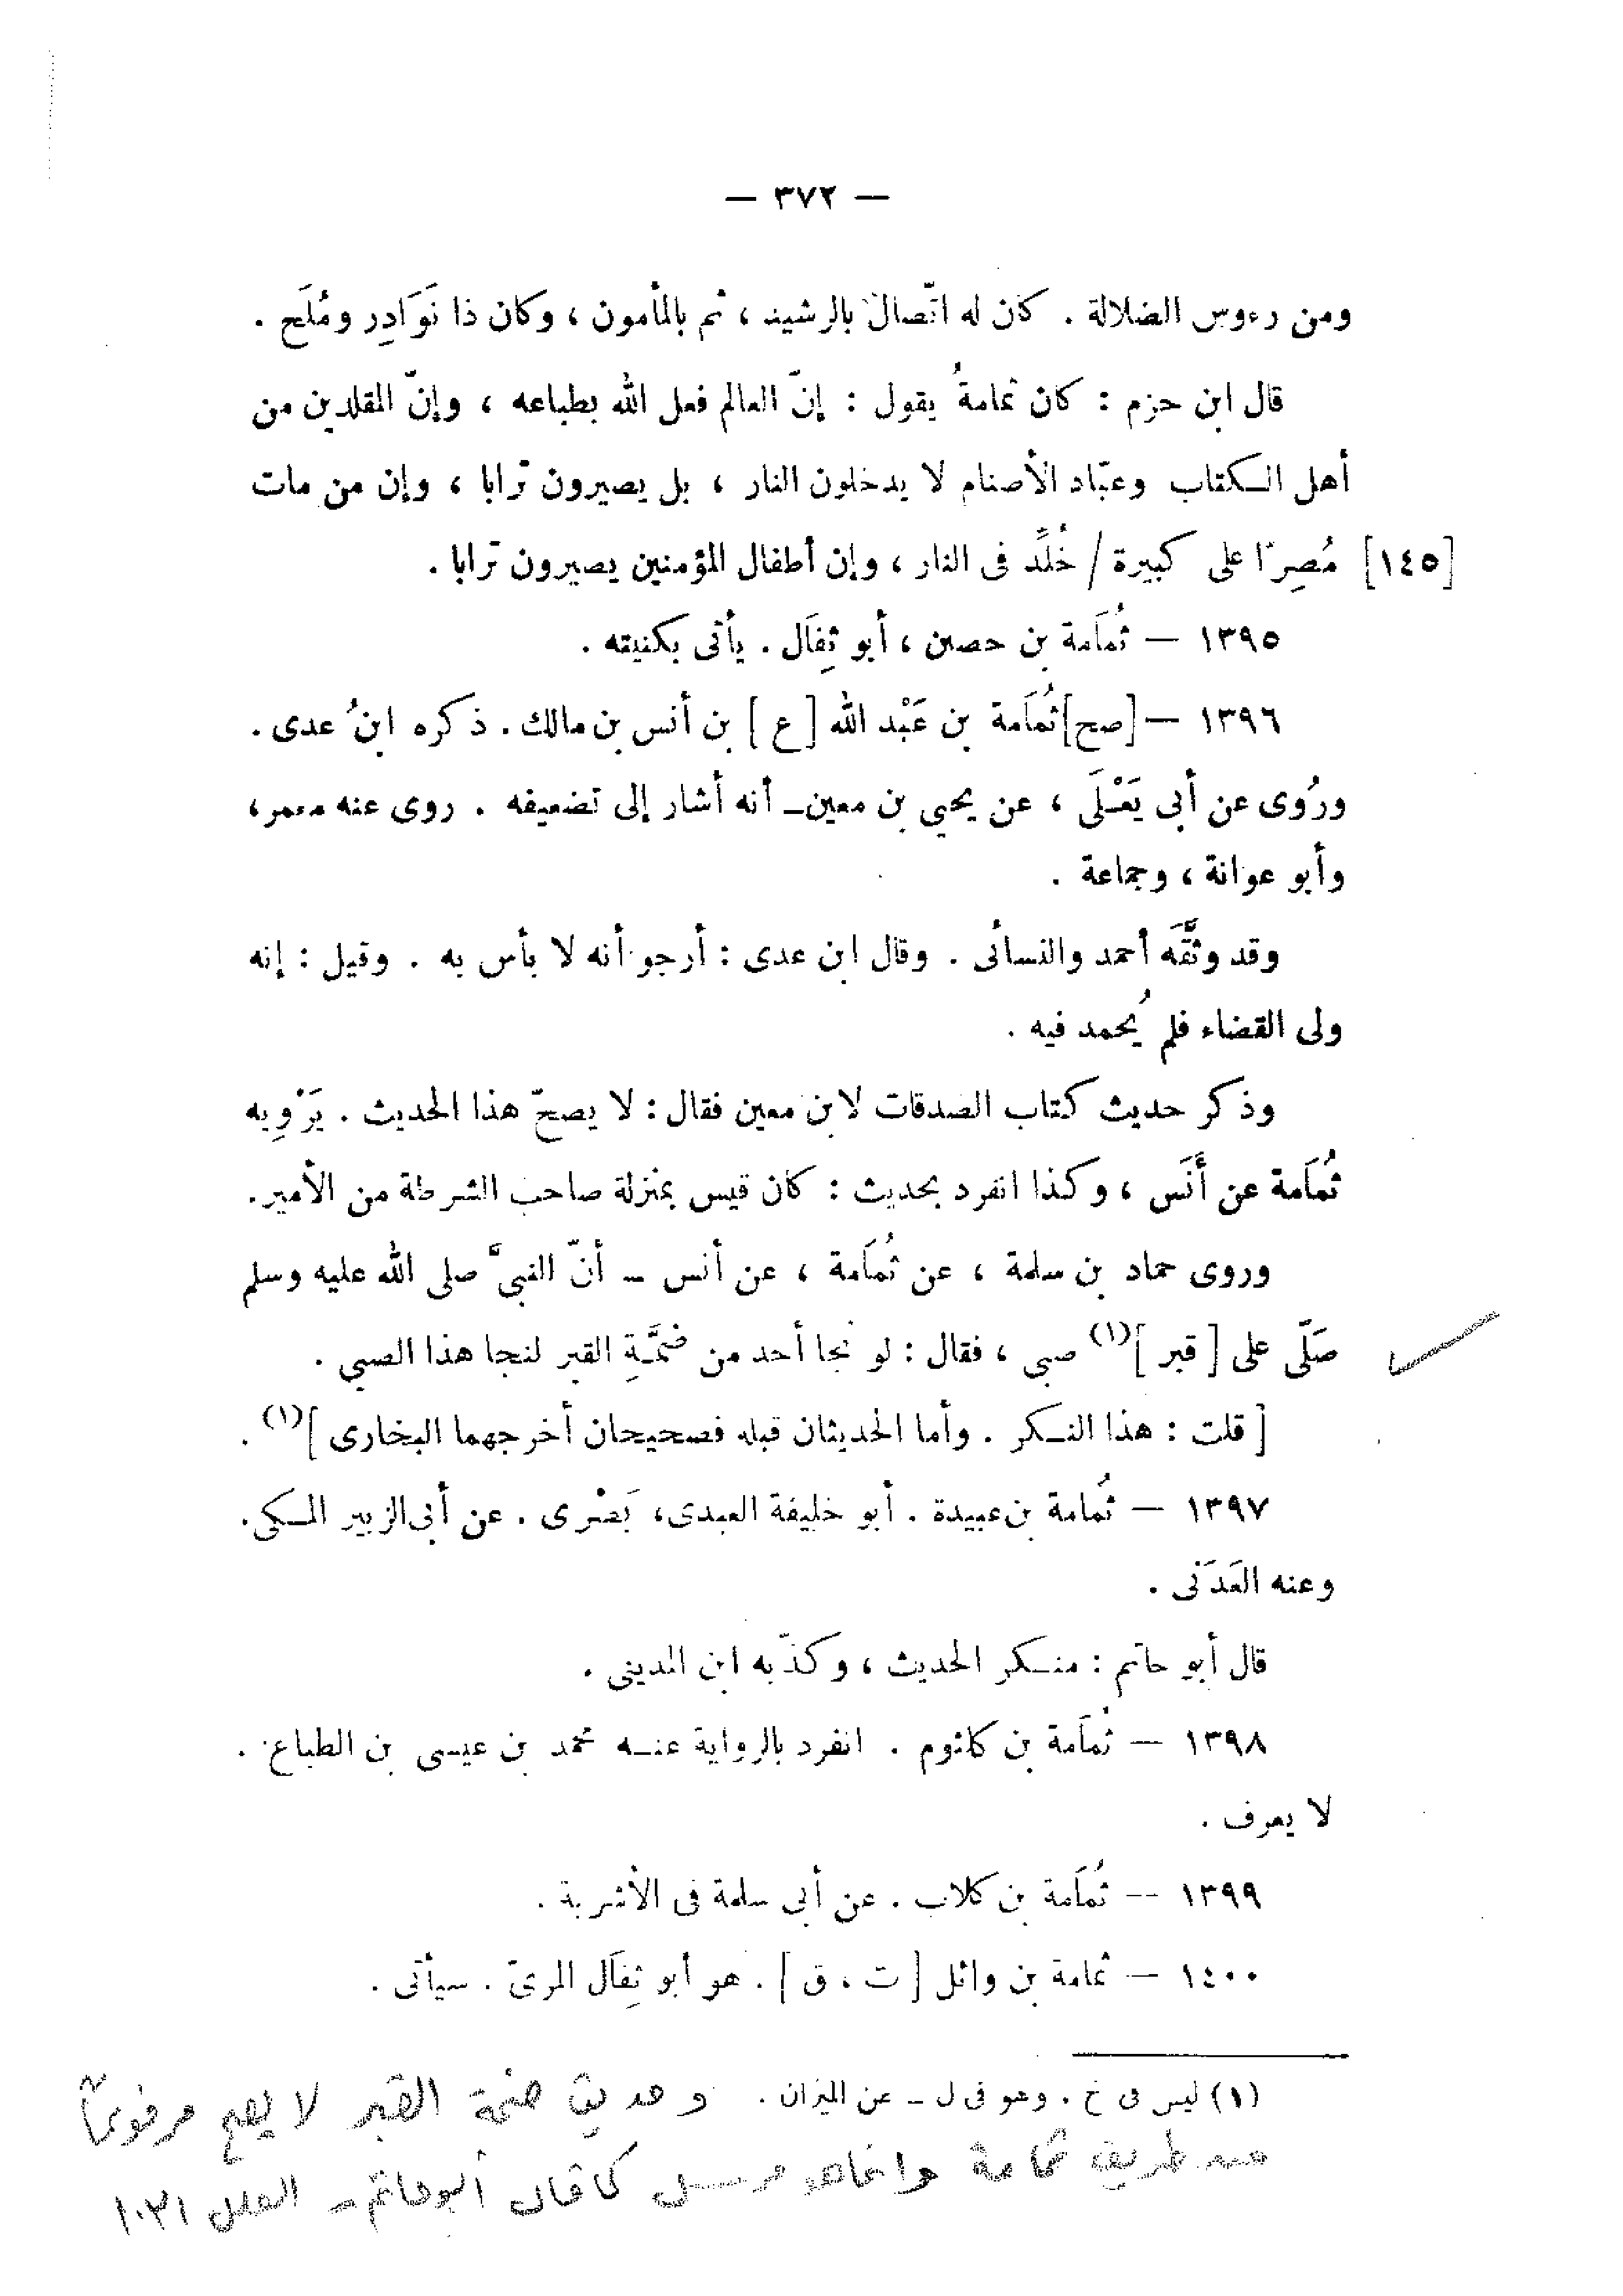 — ٣٧٢ —
ومن رءوس الضلالة . كان له اتّصال بالرشيد ، ثم بالمأمون ، وكان ذا نَوَادِر ومُلَح .
قال ابن حزم : كان ثمامةُ يقول : إنّ العالم فعل الله بطباعه ، وإنّ المقلدين من
أهل الكتاب وعبّاد الأصنام لا يدخلون النار ، بل يصيرون ترابا ، وإن من مات
[١٤٥] مُصِرّا على كبيرة / خُلِّد فى النار ، وإن أطفال المؤمنين يصيرون ترابا .
١٣٩٥ — ثُمَامة بن حصين ، أبو ثِفَال . يأتى بكنيته .
١٣٩٦ — [صح] ثُمَامة بن عَبْد الله [ ع ] بن أنس بن مالك . ذكره ابنُ عدى .
ورُوى عن أبى يَعْلَى ، عن يحيى بن معين ــ أنه أشار إلى تضعيفه . روى عنه معمر ،
وأبو عوانة ، وجماعة .
وقد وثَّقَه أحمد والنسائى . وقال ابن عدى : أرجو أنه لا بأس به . وقيل : إنه
ولى القضاء فلم يُحمد فيه .
وذكر حديث كتاب الصدقات لابن معين فقال : لا يصحّ هذا الحديث . يَرْوِيه
ثُمَامة عن أَنَس ، وكذا انفرد بحديث : كان قيس بمنزلة صاحب الشرطة من الأمير .
وروى حماد بن سلمة ، عن ثُمَامة ، عن أنس ــ أنّ النبىَّ صلى الله عليه وسلم
صَلّى على [ قبر ](١) صبى ، فقال : لو نجا أحد من ضَمَّةِ القبر لنجا هذا الصبى .
[ قلت : هذا النكر . وأما الحديثان قبله فصحيحان أخرجهما البخارى ](١) .
١٣٩٧ — ثُمامة بن عبيدة . أبو خليفة العبدى ، بَصْرى . عن أبى الزبير المكى .
وعنه العَدَنى .
قال أبو حاتم : منكر الحديث ، وكذّبه ابن المدينى .
١٣٩٨ — ثُمَامة بن كلثوم . انفرد بالرواية عنه محمد بن عيسى بن الطباع .
لا يعرف .
١٣٩٩ — ثُمَامة بن كلاب . عن أبى سلمة فى الأشربة .
١٤٠٠ — ثمامة بن وائل [ ت ، ق ] . هو أبو ثِفَال المرىّ . سيأتى .
(١) ليس فى خ . وهو فى ل ــ عن الميزان . وحديث ضمة القبر لا يصح مرفوعاً
من طريق ثمامة وإنما هو مرسل كما قال أبو حاتم - العلل ١٠٣١